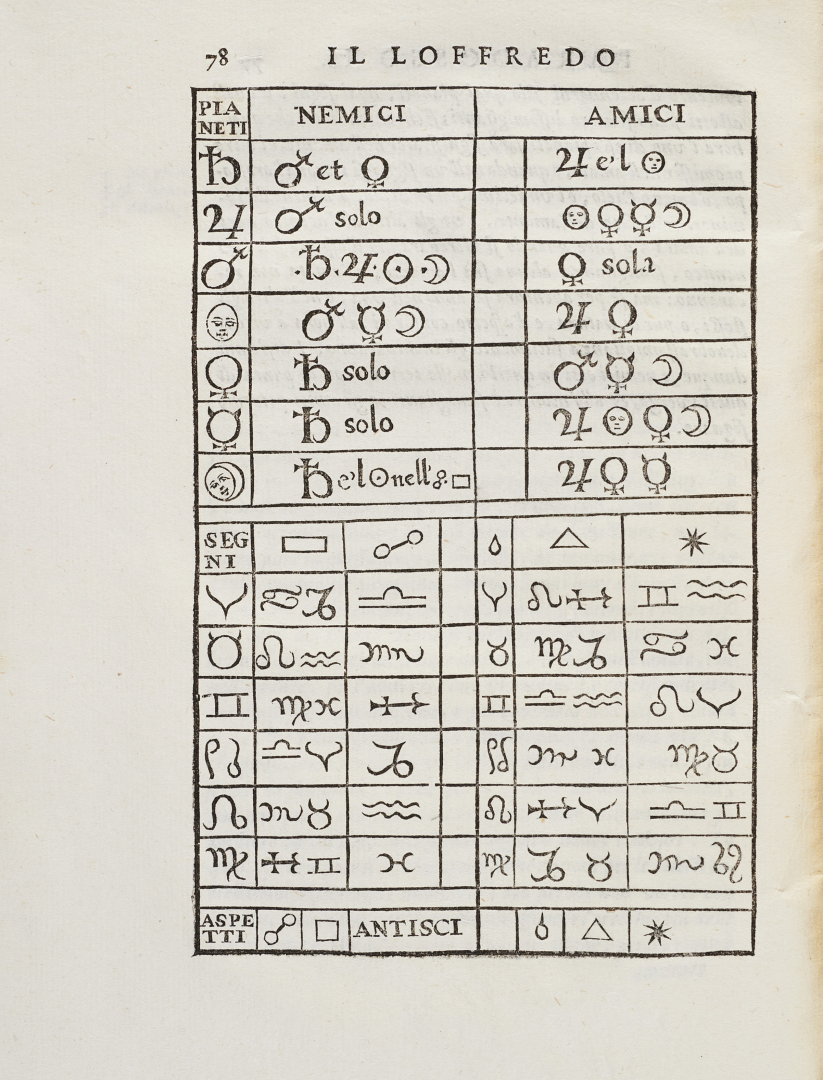 78 IL LOFFREDO
PIA
NETI NEMICI AMICI
♄ ♂ et ♀ ♃ e'l ☉
♃ ♂ solo ☉ ♀ ☿ ☽
♂ .♄.♃.☉.☽ ♀ sola
☉ ♂ ☿ ☽ ♃ ♀
♀ ♄ solo ♂ ☿ ☽
☿ ♄ solo ♃ ☉ ♀ ☽
☽ ♄ e'l ☉ nell' ☍. □ ♃ ♀ ☿
SEG
NI □ ☍ ☌ △ ✴
♈ ♋ ♑ ♎ ♈ ♌ ♐ ♊ ♒
♉ ♌ ♒ ♏ ♉ ♍ ♑ ♋ ♓
♊ ♍ ♓ ♐ ♊ ♎ ♒ ♌ ♈
♋ ♎ ♈ ♑ ♋ ♏ ♓ ♍ ♉
♌ ♏ ♉ ♒ ♌ ♐ ♈ ♎ ♊
♍ ♐ ♊ ♓ ♍ ♑ ♉ ♏ ♋
ASPE
TTI ☍ □ ANTISCI ☌ △ ✴